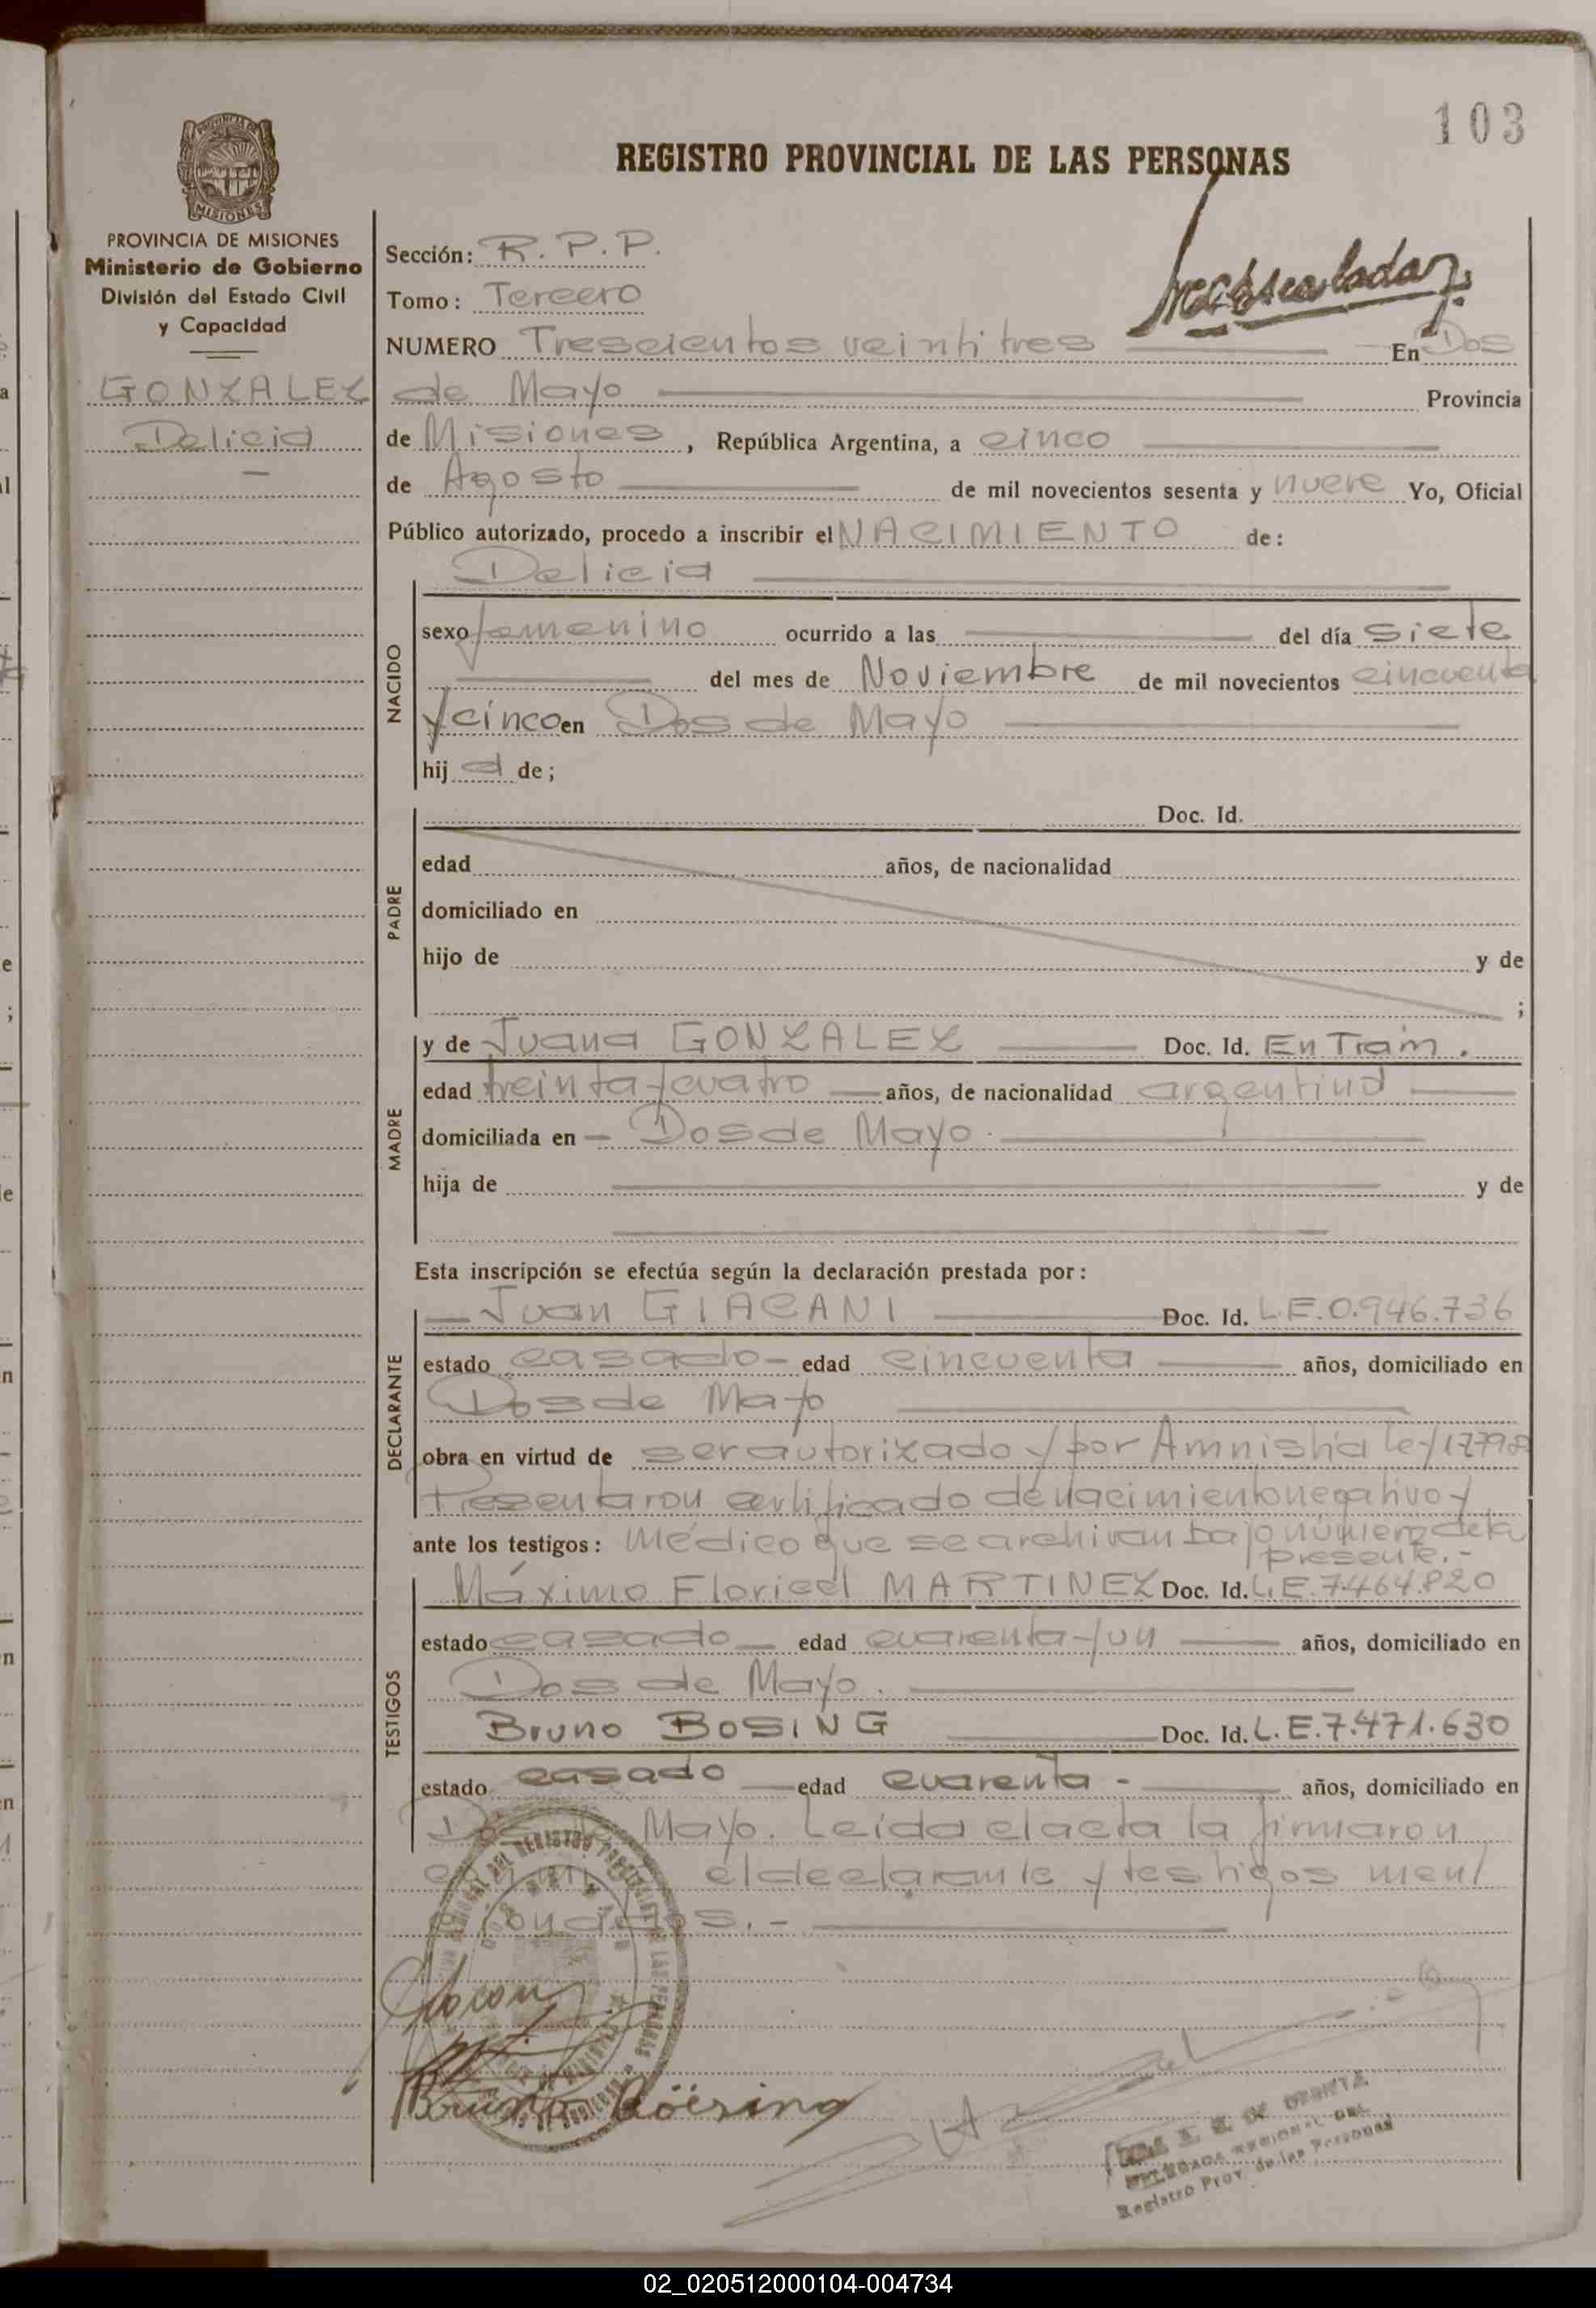 103
REGISTRO PROVINCIAL DE LAS PERSONAS
PROVINCIA DE MISIONES
MISIONES
PROVINCIA DE MISIONES
Ministerio de Gobierno
División del Estado Civil
y Capacidad
GONZALEZ
Delicia
Sección: R. P. P.
Tomo: Tercero
NUMERO Trescientos veintitres En Dos
de Mayo Provincia
de Misiones, República Argentina, a cinco
de Agosto de mil novecientos sesenta y nueve Yo, Oficial
Público autorizado, procedo a inscribir el NACIMIENTO de:
NACIDO
Delicia
sexo femenino ocurrido a las del día siete
del mes de Noviembre de mil novecientos cincuenta
y cinco en Dos de Mayo
hij a de;
PADRE
Doc. Id.
edad años, de nacionalidad
domiciliado en
hijo de y de
;
MADRE
y de Juana GONZALEZ Doc. Id. En Tram.
edad treinta y cuatro años, de nacionalidad argentina
domiciliada en - Dos de Mayo.
hija de y de
Esta inscripción se efectúa según la declaración prestada por:
DECLARANTE
Juan GIACANI Doc. Id. L.E.0.946.736
estado casado - edad cincuenta años, domiciliado en
Dos de Mayo
obra en virtud de ser autorizado y por Amnistía Ley
Presentaron certificado de nacimiento negativo y
ante los testigos: Médico que se archivan bajo número de la
presente.-
TESTIGOS
Máximo MARTINEZ Doc. Id. L.E.7.464.820
estado casado edad cuarenta y un años, domiciliado en
Dos de Mayo.
Bruno BOSING Doc. Id. L.E.7.471.630
estado casado edad cuarenta - años, domiciliado en
Mayo. Leída el acta la firmaron
el declarante y testigos menc
Bruno Bösing
Registro Prov. de las Personas
02_020512000104-004734